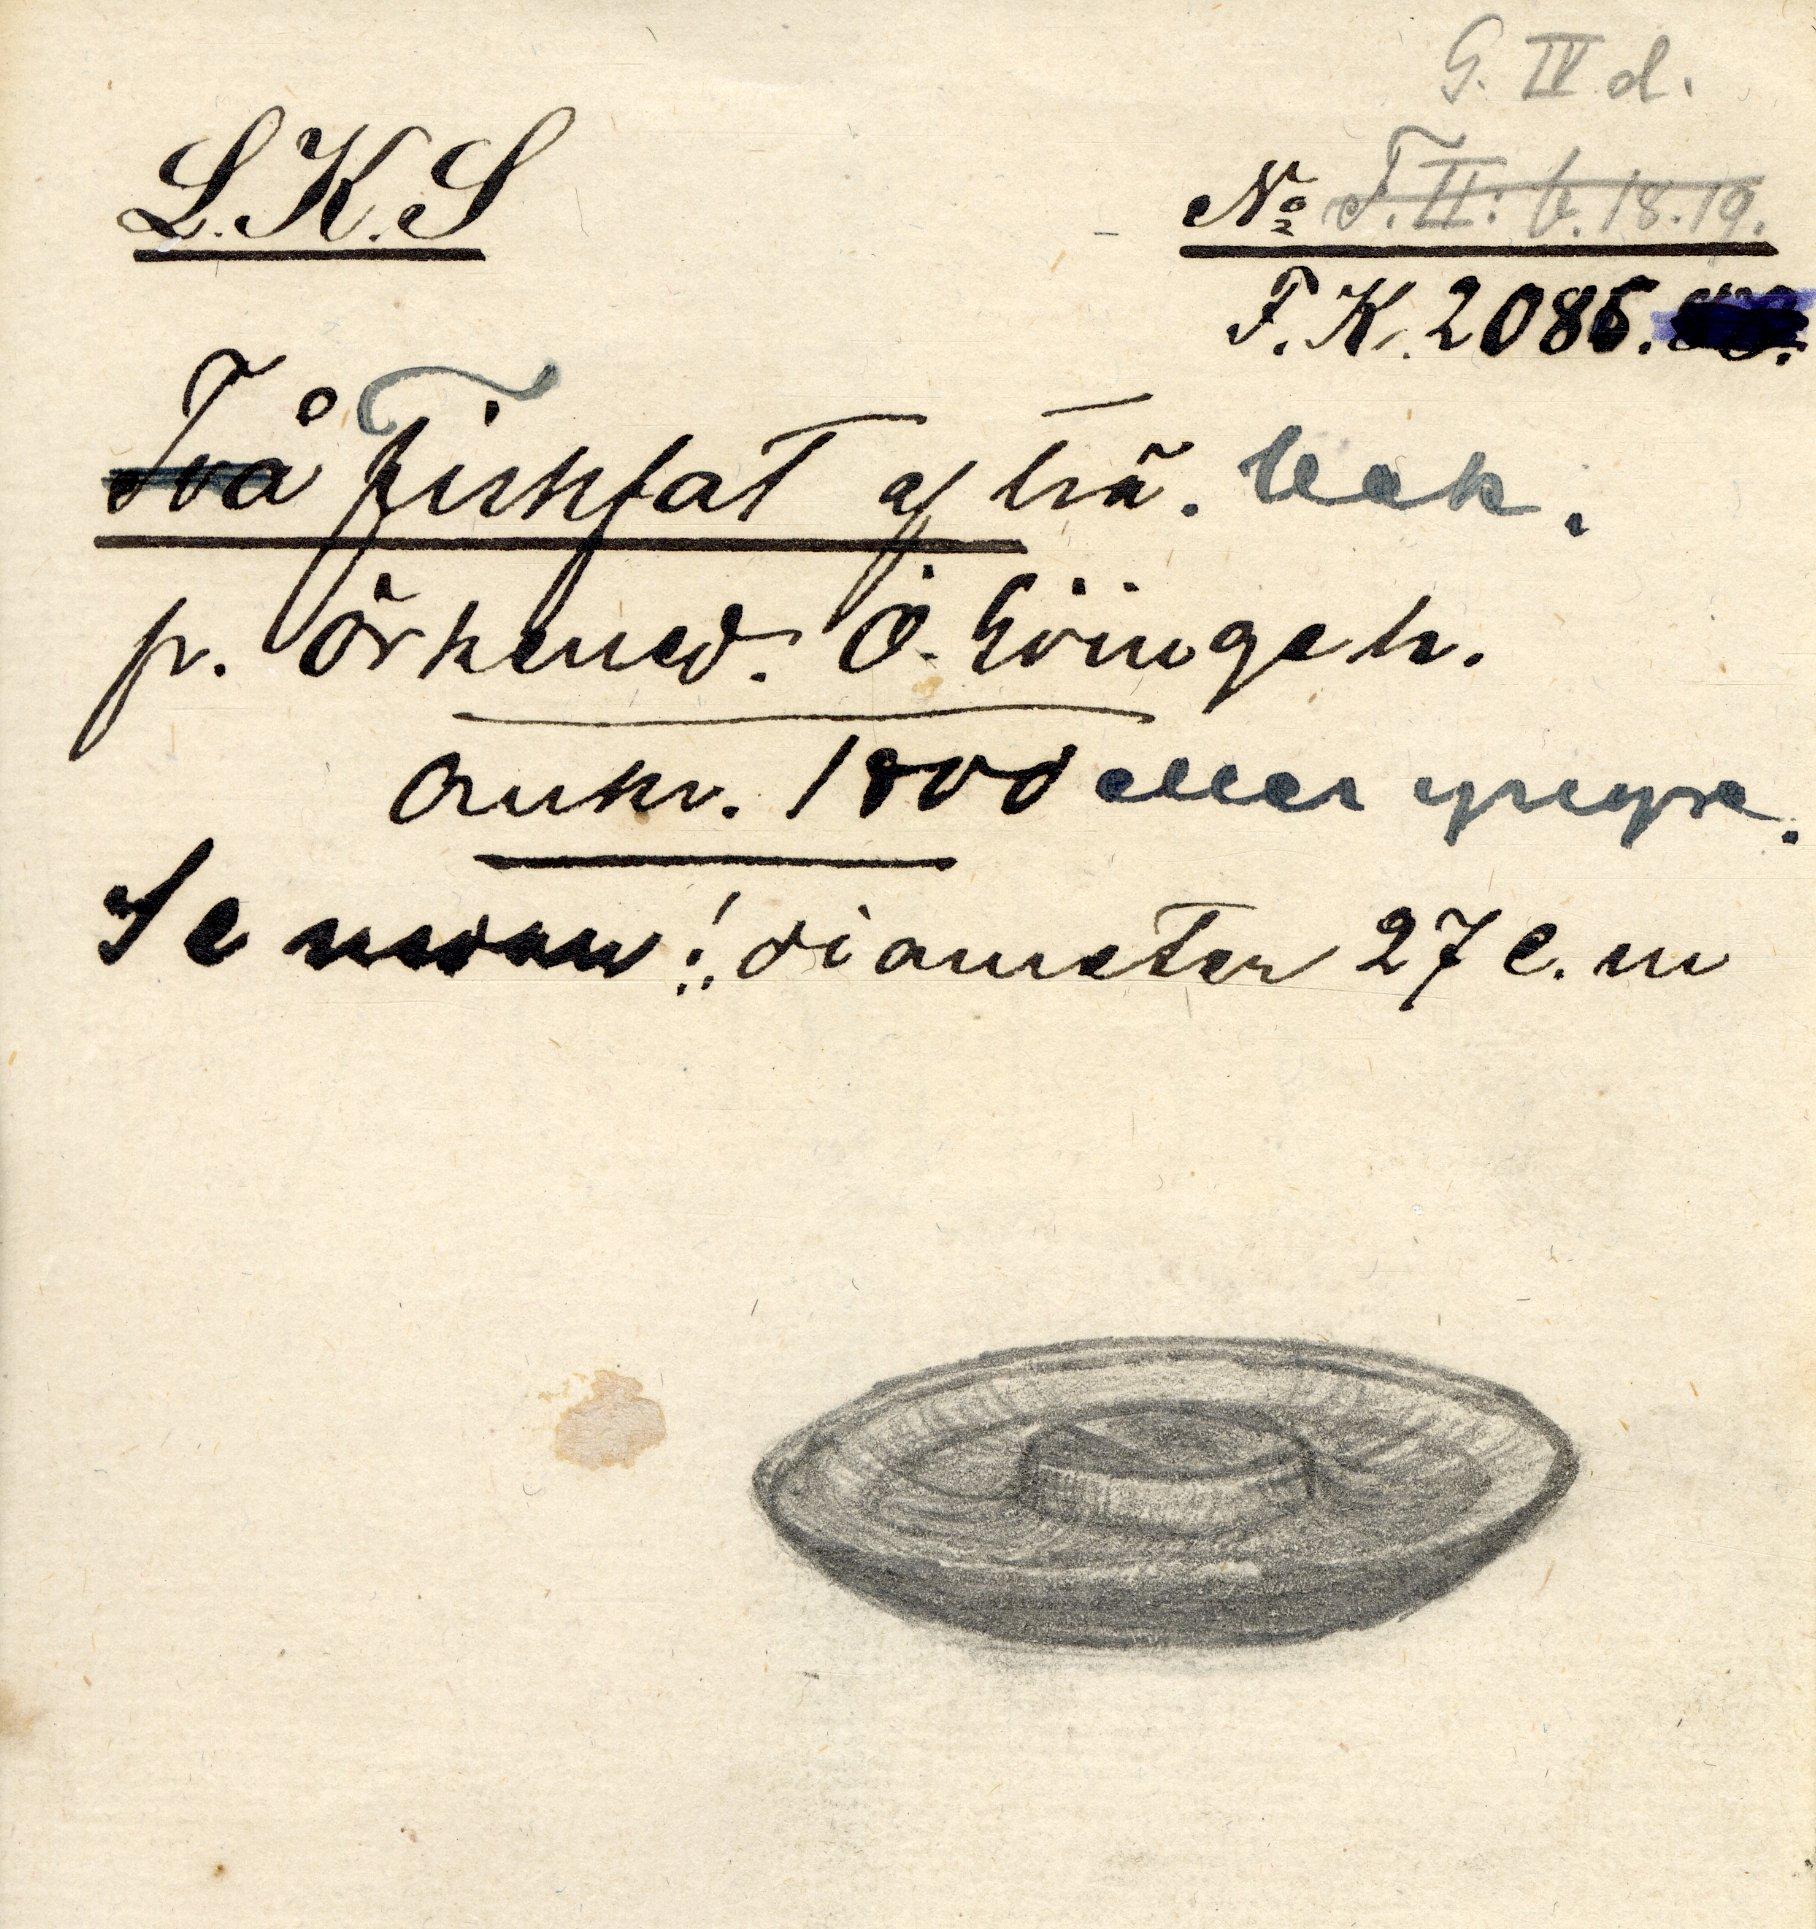 G. IV d.
L.K.S
No F.II: b. 18.19.
F.K. 2086.
Två Fiskfat af trä. bok.
fr. Örkened. Ö. Göinge h.
omkr. 1800 eller yngre.
Se nedan! diameter 27 c.m